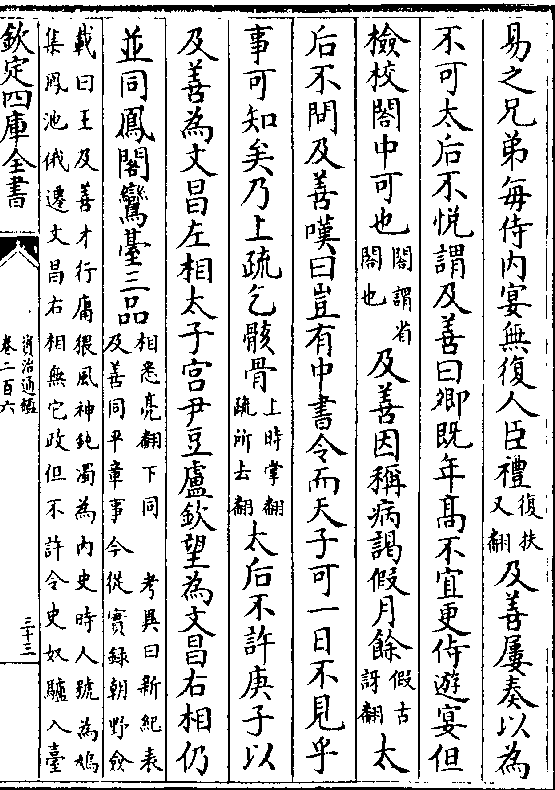 易之兄弟每侍内宴無復人臣禮復扶又翻及善屢奏以為
不可太后不悦謂及善曰卿既年髙不宜更侍遊宴但
檢校閤中可也閤謂省閤也及善因稱病謁假月餘假古訝翻太
后不問及善嘆曰豈有中書令而天子可一日不見乎
事可知矣乃上疏乞骸骨上時掌翻疏所去翻太后不許庚子以
及善為文昌左相太子宫尹豆盧欽望為文昌右相仍
並同鳳閣鸞臺三品相悉亮翻下同考異曰新紀表及善同平章事今從實録朝野僉
載曰王及善才行庸猥風神鈍濁為内史時人號為鳩
集鳳池俄遷文昌右相無它政但不許令史奴驢入臺
欽定四庫全書
資治通鑑
卷二百六
三十三